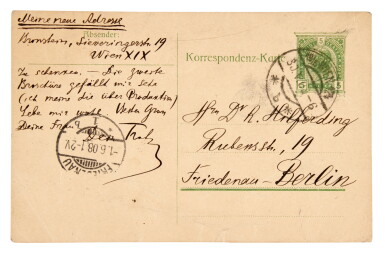 Meine neue Adresse
Absender:
Bronstein, Sieveringerstr 19
Wien XIX
zu schenken. — Die zweite
Broschüre gefällt mir sehr
(ich meine die über Produktion)
Lebe mir wohl
Deine
Dein
Korrespondenz-Karte
Hrn Dr R. Hilferding
Rubensstr. 19
Friedenau-Berlin
FRIEDENAU
1.6.08.1-2V.